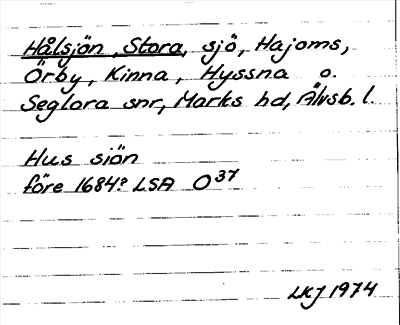 Hålsjön, Stora, sjö, Hajoms,
Örby, Kinna, Hyssna o.
Seglora snr, Marks hd, Älvsb. l.
Hus siön
före 1684? LSA O³⁷
LKJ 1974